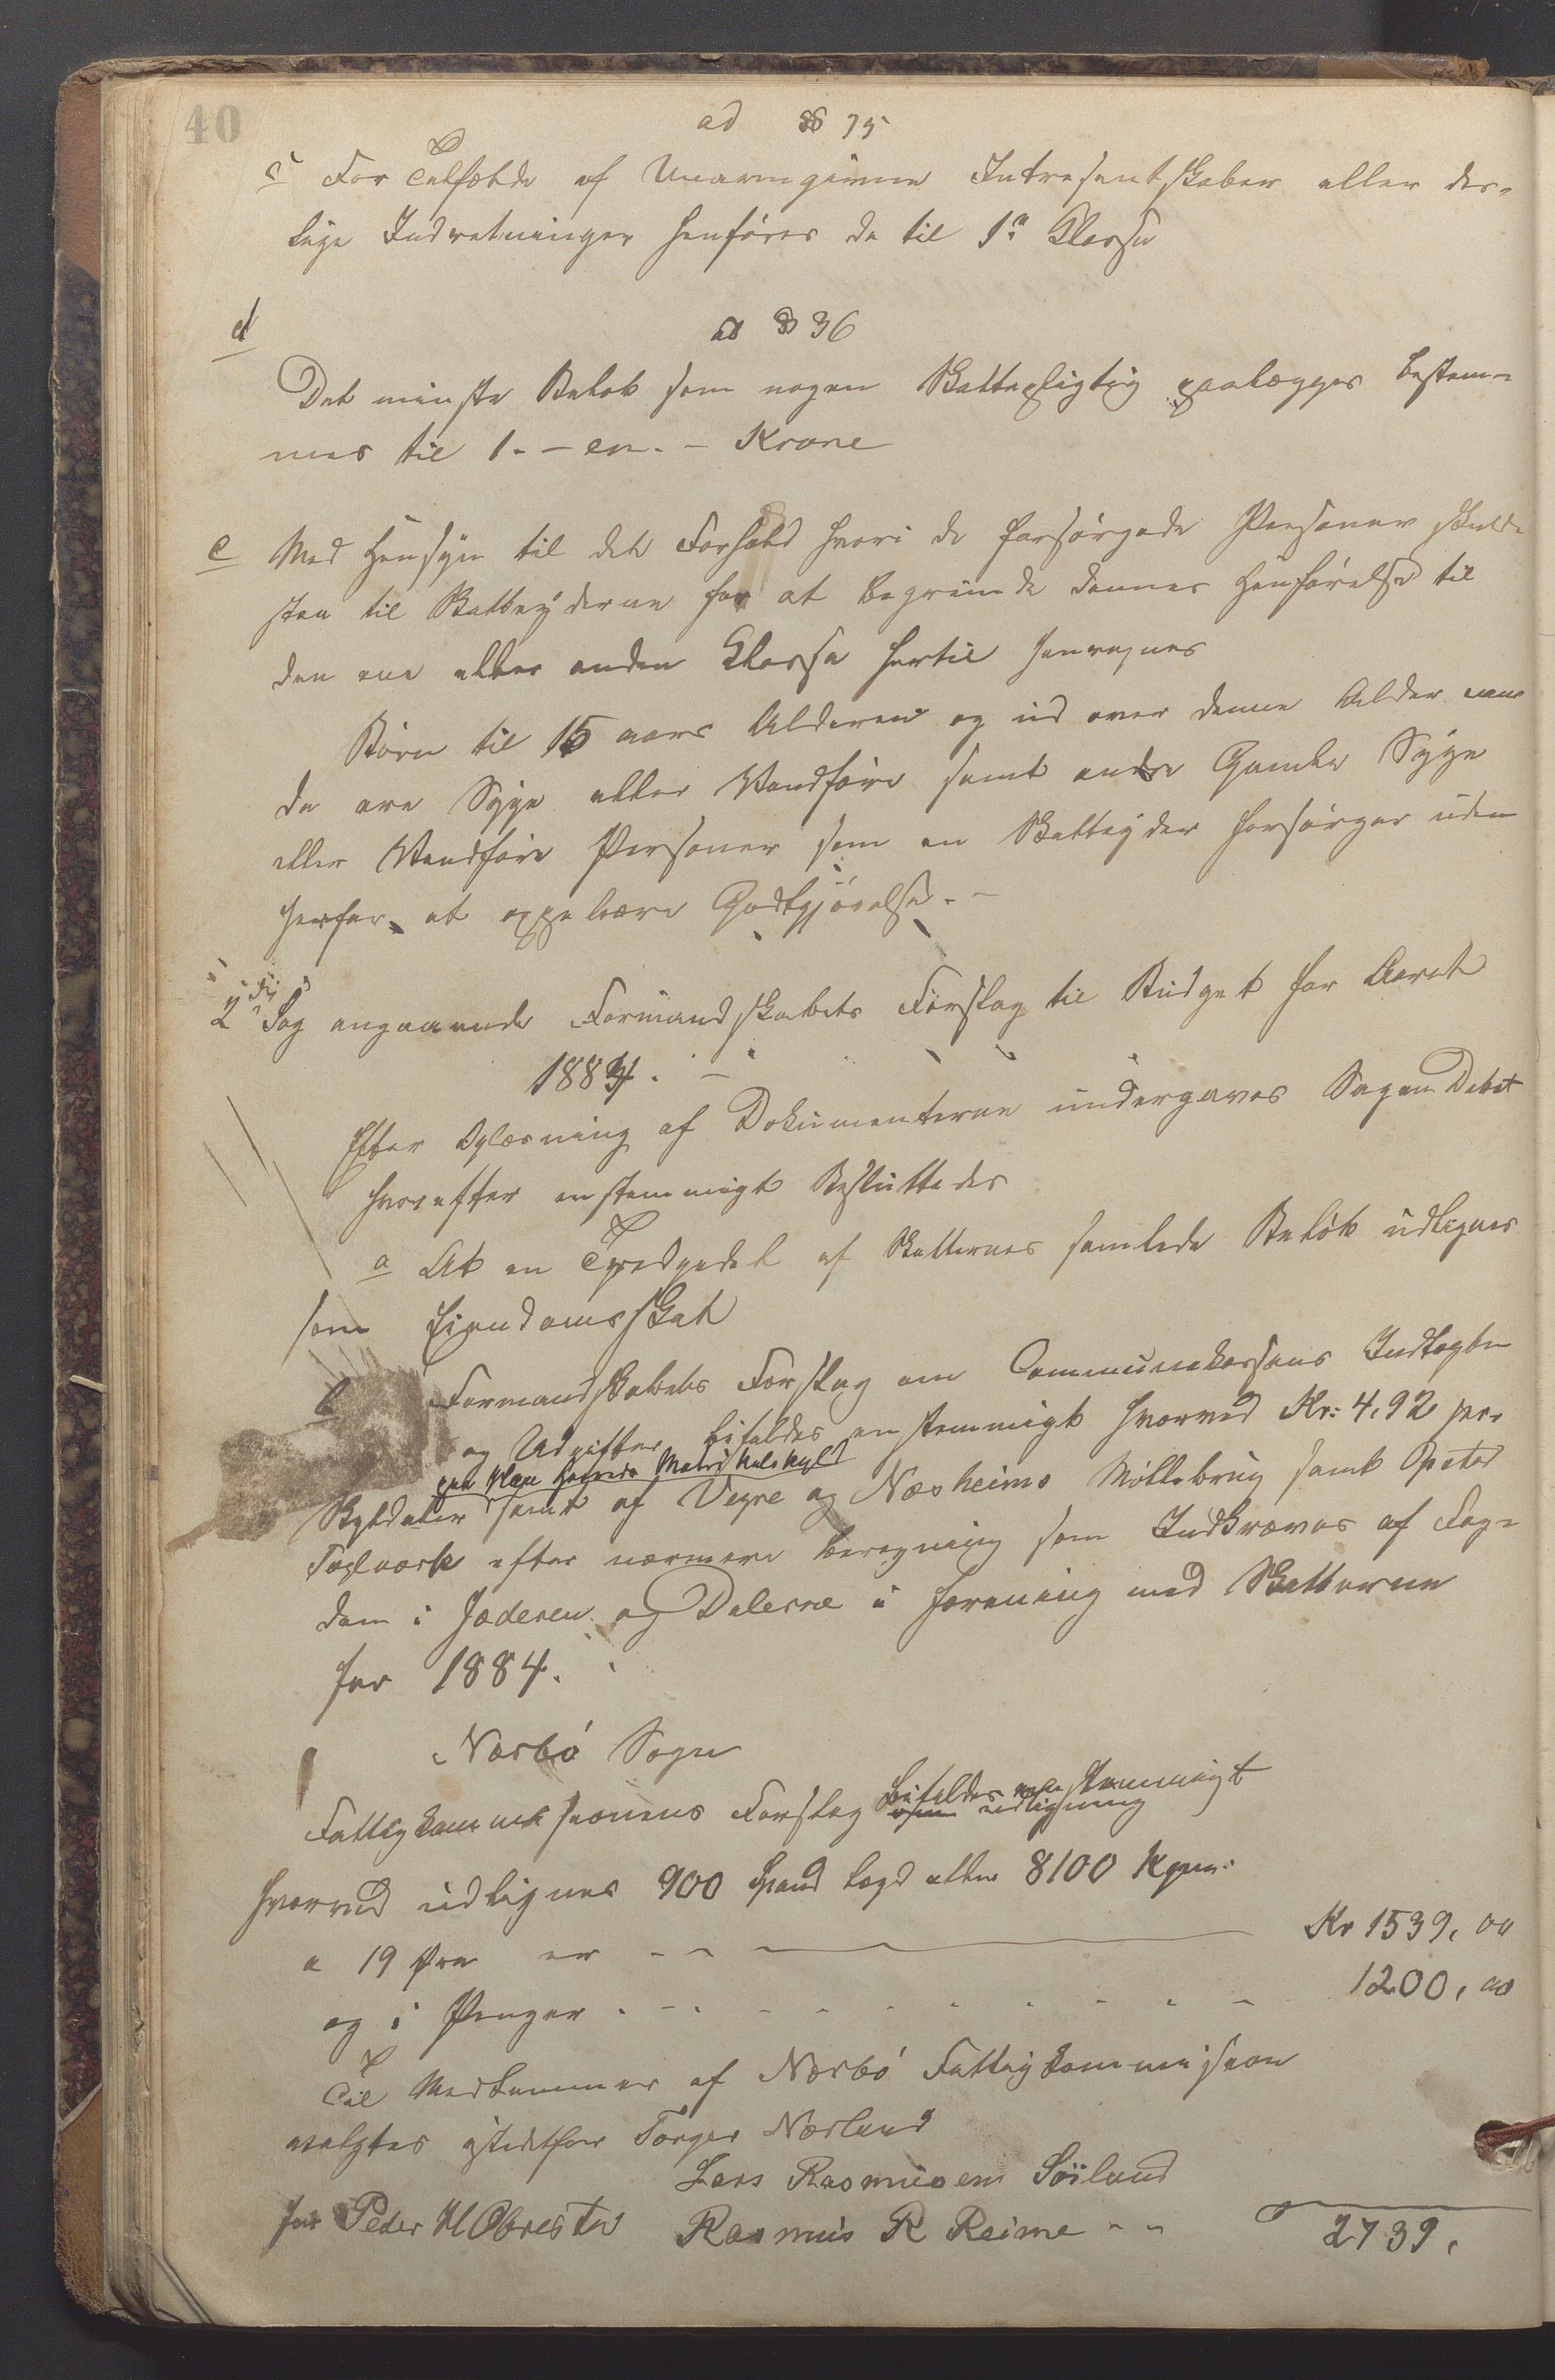 40
ad § 75
c For Tilfælde af Unavngivne Intresentskaber eller des-
lige Indretninger henføres de til 1ste Klasse
d
ad § 36
Det minste Beløb som nogen Skattepligtig paalægges bestem-
mes til 1. - en. - Krone
e Med Hensyn til det Forhold hvori de forsørgede Personer skulde
staa til Skatteyderne for at begrunde dennes Henførelse til
den ene eller anden Klasse hertil henregnes
Børn til 15 aars Alderen og ud over denne Alder naar
de ere Syge eller Vandføre samt andre Gamle Syge
eller Vandføre Personer som en Skatteyder forsørger uden
herfor at oppebære Godtgjørelse. -
2 Sag angaaende Formandskabets Forslag til Budget for Aaret
1884. -
Efter Oplæsning af Dokumenterne undergaves Sagen Debat
hvorefter enstemmigt Besluttedes
a At en Tredjedel af Skatternes samlede Beløb udlignes
som Eiendomsskat
b Formandskabets Forslag om Communekassens Indtægter
og Udgifter bifaldes enstemmigt hvorved Kr: 4,92 per
paa Matriculskyld
Skyldaler samt af Vigre og Næsheims Møllebrug samt Opstad
Teglværk efter nærmere beregning som Indkræves af Fog-
den i Jæderen og Dalerne i forening med Skatterne
for 1884.
Nærbø Sogn
Fattigkommissionens Forslag bifaldes enstemmigt
om udligning
hvorved udlignes 900 Spand lægd eller 8100 Kgrm:
a 19 Øre er - - - Kr 1539,00
og i Penger . - . - - - - - - - - 1200,00
Til Medlemmer af Nærbø Fattigkommission
valgtes istedetfor Torger Nærland
Lars Rasmusen Söiland
for Peder M Obrestad Rasmus R Reime - -
2739,